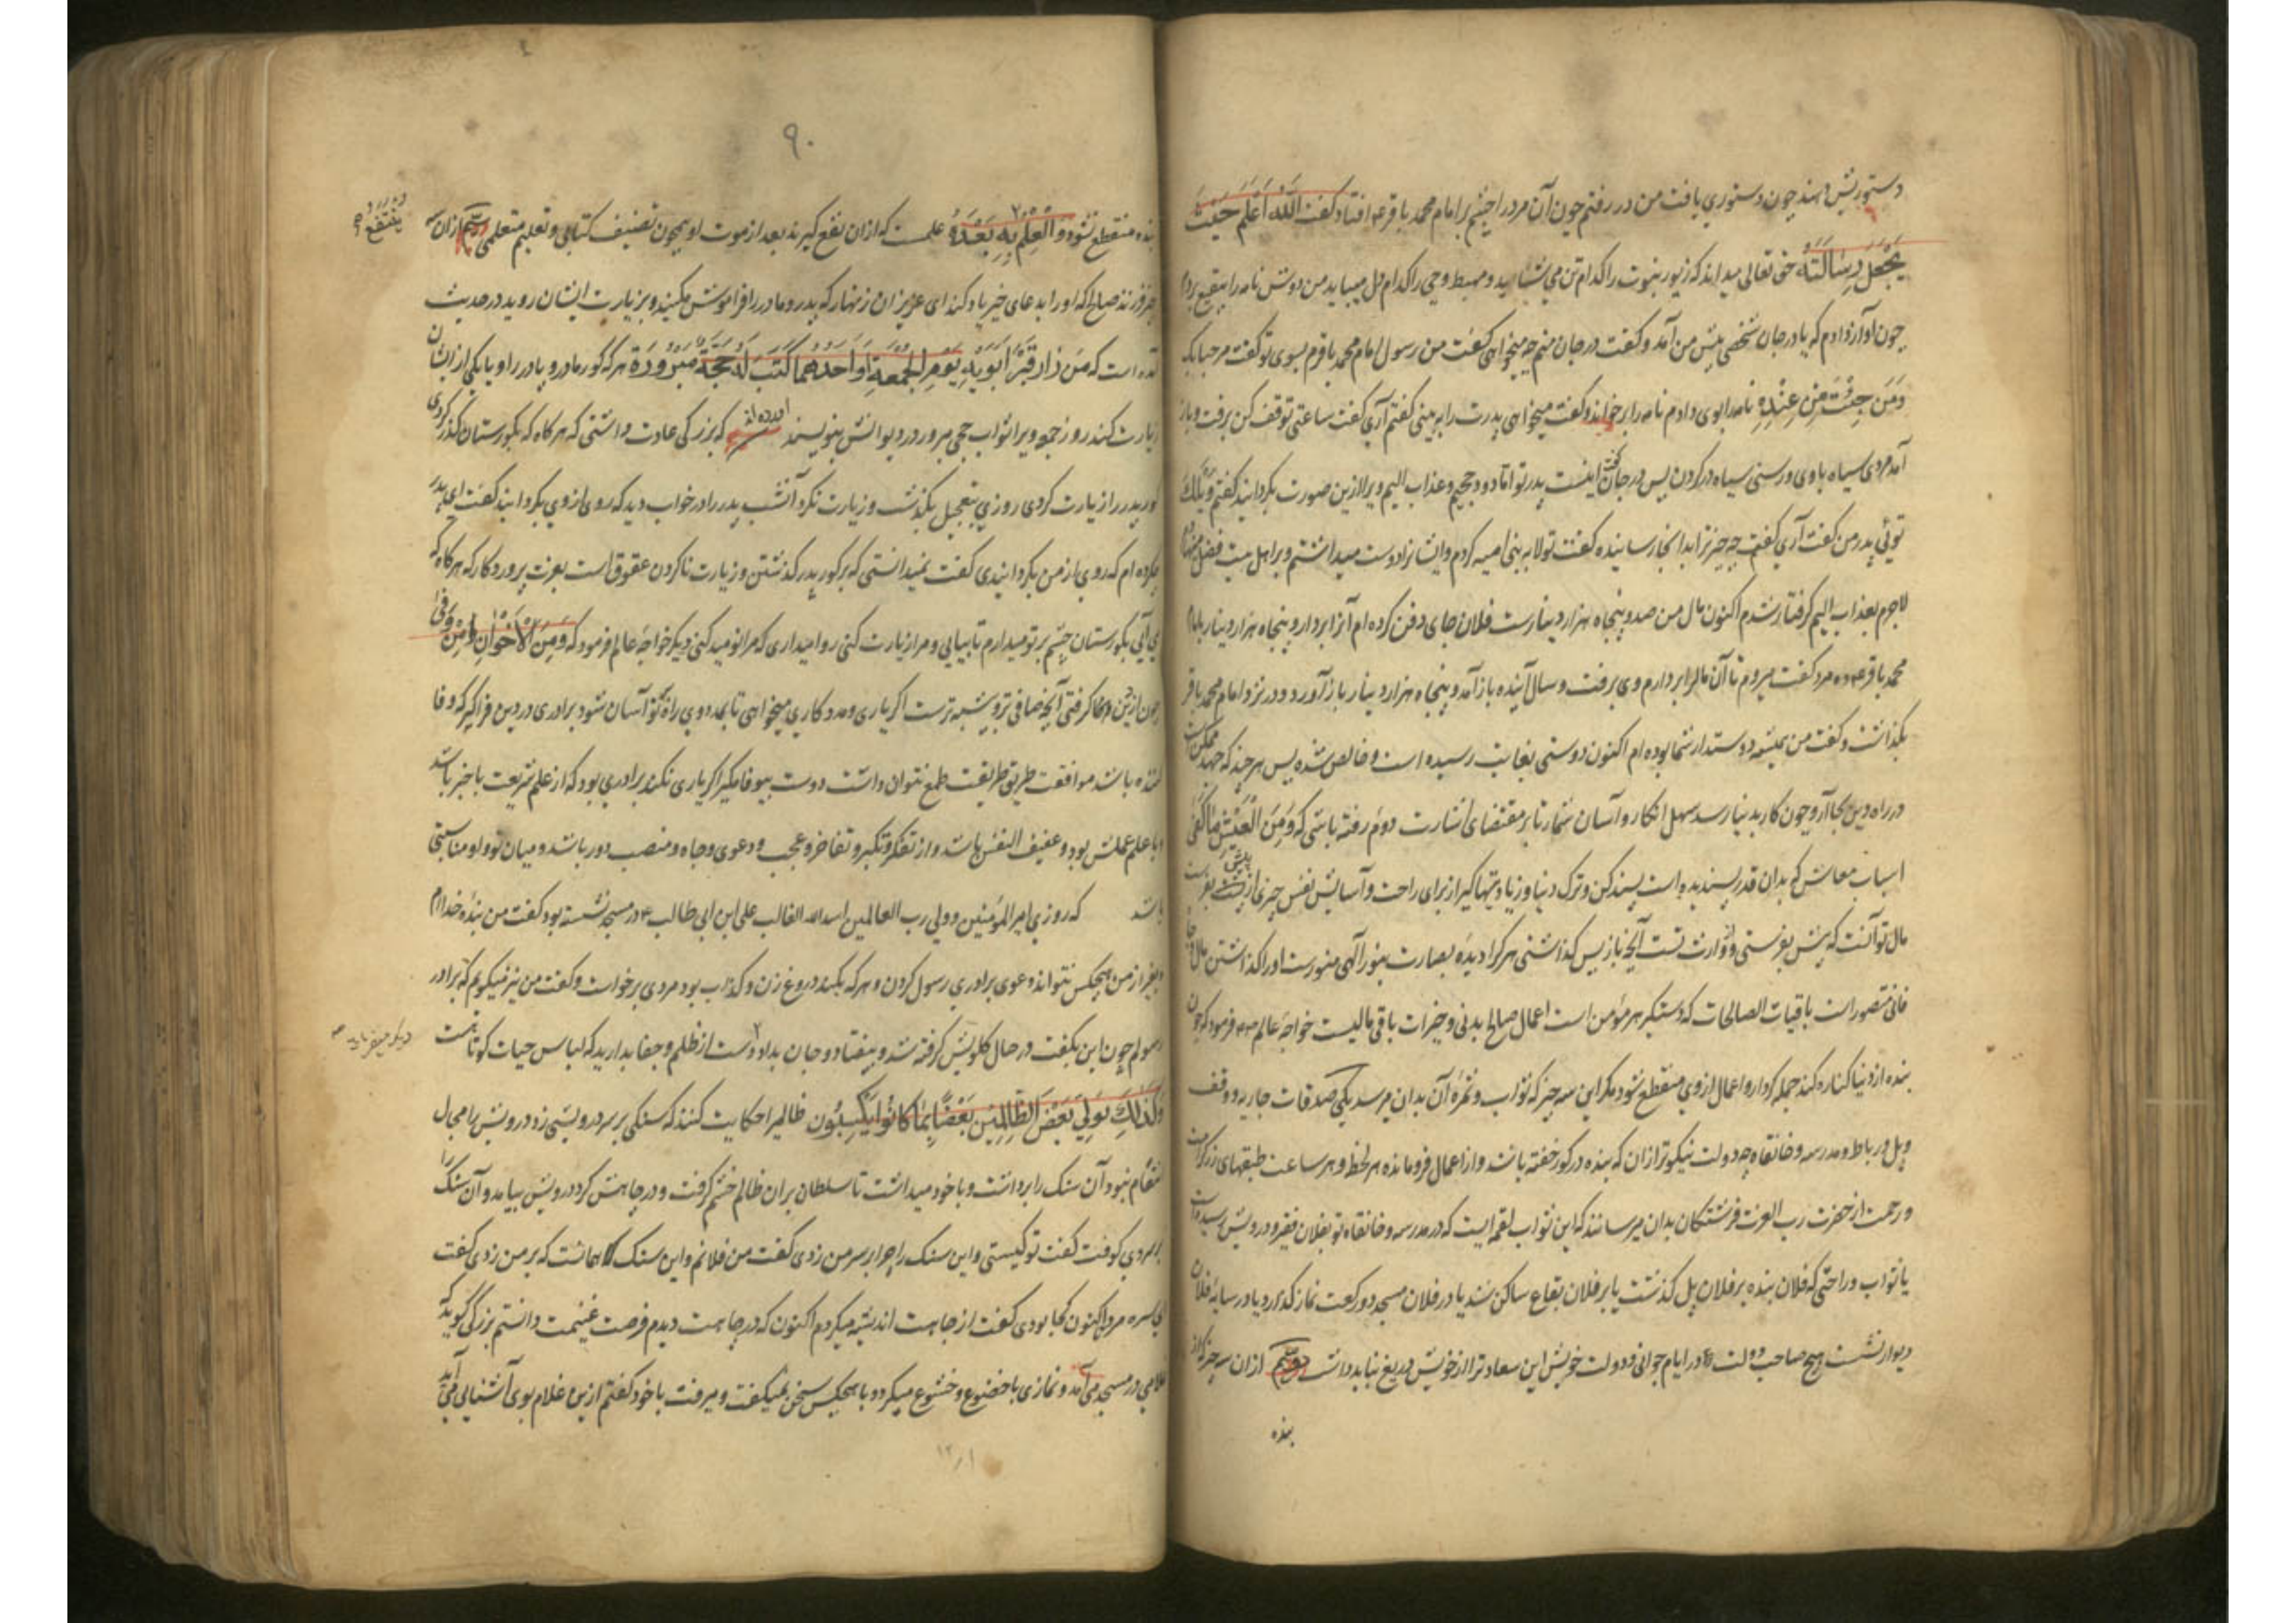 دستوریش دهند چون دستوری یافت من در رفتم چون آن مرد را چشم بر امام محمد باقر ع افتاد گفت اَللّٰهُ اَعْلَمُ حَیْثُ
یَجْعَلُ رِسَالَتَهُ حق تعالی میداند که زیور نبوت را کدام تن می شاید و مهبط وحی را کدام دل میباید من دوش نامه را ببقیع بردم
چون آواز دادم که یا درجان شخصی پیش من آمد و گفت درجان منم چه میخواهی گفت من رسول امام محمد باقرم بسوی تو گفت مرحبا بک
وَمَن جِئْتَ مِنْ عِنْدِهِ نامه را بوی دادم نامه را بر خواند و گفت میخواهی پدرت را به بینی گفتم آری گفت ساعتی توقف کن برفت و باز
آمد مردی سیاه با وی و رسنی سیاه در کردن پس درجان گفت اینست پدر تو اما دود جحیم و عذاب الیم ویرا از این صورت بگردانید گفتم ویلک
توئی پدر من گفت آری گفتم چه چیز ترا بدانجا رسانیده گفت تولا به بنی امیه کردم و ایشانرا دوست میداشتم و بر اهل بیت فضل می نهادم
لاجرم بعذاب الیم گرفتار شدم اکنون مال من صد و پنجاه هزار دینارست فلان جای دفن کرده ام آنرا بردار و پنجاه هزار دینار بامام
محمد باقر ع ده مرد گفت میروم تا آن مال را بردارم وی برفت و سال آینده باز آمد و پنجاه هزار دینار باز آورد و در نزد امام محمد باقر
بگذاشت و گفت من همیشه دوستدار شما بوده ام اکنون دوستی بغایت رسیده است و خالص شده پس هر چند که جهد ممکن است
در راه دین بجا آر و چون کار بدنیا رسد سهل انکار و آسان شمار تا بر مقتضای اشارت دوم رفته باشی که وَمِنَ الْعَیْشِ مَا کَفٰی
اسباب معاش که بدان قدر پسندیده است پسند کن و ترک دنیا و زیادتیها گیر از برای راحت و آسایش نفس چیزی از پیش بفرست
مال تو آنست که پیش بفرستی و از وارث تست آنچه باز پس گذاشتی هر کرا دیده بصارت بنور الهی منورست او را گذاشتن مال
فانی متصور است باقیات الصالحات که دستگیر هر مؤمن است اعمال صالح بدنی و خیرات باقی مالیست خواجه عالم ص فرمود که چون
بنده از دنیا کناره کند جمله کردار و اعمال از وی منقطع شود مگر این سه چیز که ثواب و ثمره آن بدان میرسد یکی صدقات جاریه و وقف
و پل و رباط و مدرسه و خانقاه چه دولت نیکوتر از ان که بنده در گور خفته باشد و از اعمال فرو مانده هر لحظه و هر ساعت طبقهای زر کرامت
و رحمت از حضرت رب العزت فرشتگان بدان میرسانند که این ثواب لقمه ایست که در مدرسه و خانقاه تو بفلان فقیر و درویش رسیده است
یا ثواب و راحتی که فلان بنده بر فلان پل گذشت یا بر فلان بقاع ساکن شد یا در فلان مسجد دو رکعت نماز گذارد یا در سایه فلان
دیوار نشست هیچ صاحب دولت در ایام جوانی و دولت خویش این سعادت را از خویش دریغ نباید داشت دویم از ان سه چیز که از
بنده
۹۰
بنده منقطع نشود وَالْعِلْمُ بِهِ بَعْدَهُ علمست که از ان نفع گیرند بعد از موت او همچون تصنیف کتابی و تعلیم متعلمی سیم از ان
ینتفع
چیز فرزند صالح که او را بدعای خیر یاد کند ای عزیزان زنهار که پدر و مادر را فراموش مکنید و بزیارت ایشان روید در حدیث
آمده است که مَن زَارَ قَبْرَ اَبَوَیْهِ یَوْمَ الْجُمْعَةِ اَوْ اَحَدِهِمَا کُتِبَ لَهُ حَجَّةٌ مَبْرُورَةٌ هر که گور مادر و پدر را و یا یکی از ایشان
زیارت کند روز جمعه ویرا ثواب حجی مبرور در دیوانش بنویسند آورده اند که بزرگی عادت داشتی که هر گاه که بگورستان گذر کردی
گور پدر را زیارت کردی روزی بتعجیل بگذشت و زیارت نکرد آنشب پدر را در خواب دید که روی از وی بگردانید گفت ای پدر
چکرده ام که روی از من بگردانیدی گفت نمیدانستی که بر گور پدر گذشتن و زیارت ناکردن عقوق است بعزت پروردگار که هر گاه که
می آیی بگورستان چشم بر تو میدارم تا بیایی و مرا زیارت کنی روا میداری که مرا نومید کنی دیگر خواجه عالم فرمود که وَمِنَ الْاِخْوَانِ مَنْ وَفٰی
اکر یاری و مددکاری میخواهی تا بمدد وی راه تو آسان شود برادری در دین فراگیر که وفا
کننده باشد موافقت طریق طریقت طمع نتوان داشت دوست بیوفا مگیر اگر یاری نکند برادری بود که از علم شریعت با خبر باشد
و با علم عملش بود و عفیف النفس باشد و از تفکر و تکبر و تفاخر و عجب و دعوی و جاه و منصب دور باشد و میان تو و او مناسبتی
باشد که روزی امیر المؤمنین و ولی رب العالمین اسد الله الغالب علی ابن ابی طالب ع در مسجد نشسته بود گفت من بنده خدا ام
و بغیر از من هیچکس نتواند دعوی برادری رسول کردن و هر که بکند دروغ زن و کذاب بود مردی برخواست و گفت من نیز میگویم که برادر
رسولم چون این بگفت در حال گلویش گرفته شد و بیفتاد و جان بداد دست از ظلم و جفا بدارید که لباس حیات کوتاهست
دیگر میفرماید
وَکَذٰلِکَ نُوَلِّی بَعْضَ الظّٰلِمِیْنَ بَعْضًا بِمَا کَانُوْا یَکْسِبُوْنَ ظالمی را حکایت کنند که سنگی بر سر درویشی زد درویش را مجال
انتقام نبود آن سنگ را برداشت و با خود میداشت تا سلطان بر ان ظالم خشم گرفت و در چاهش کرد درویش بیامد و آن سنگ را
بر سر وی کوفت گفت تو کیستی و این سنگ را چرا بر سر من زدی گفت من فلانم و این سنگ همانست که بر من زدی گفت
اکنون کجا بودی گفت از جاهت اندیشه میکردم اکنون که در چاهت دیدم فرصت غنیمت دانستم بزرگی گوید که
غلامی در مسجد می آمد و نمازی با خضوع و خشوع میکرد و با هیچکس سخن نمیگفت و میرفت با خود گفتم از این غلام بوی آشنایی می آید